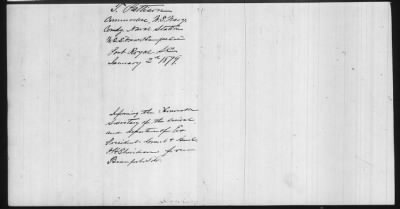 T. Pattison
Commodore U.S. Navy
Comdg. Naval Station
U.S.S. New Hampshire
Port Royal S.C.
January 2nd 1879.
Informing the Honorable
Secretary of the arrival
and departure of Ex
President Grant &
from
Beaufort S.C.